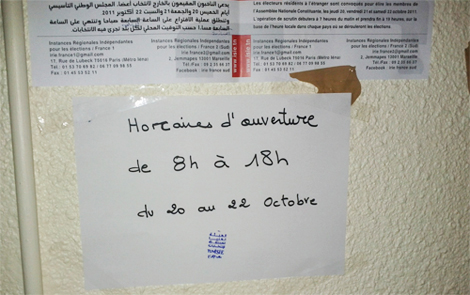 يدعى الناخبون المقيمون بالخارج لانتخاب أعضاء المجلس الوطني التأسيسي
أيام الخميس 20 والجمعة 21 والسبت 22 أكتوبر 2011
وتنطلق عملية الاقتراع على الساعة السابعة صباحا وتنتهي على الساعة
السابعة مساء حسب التوقيت المحلي لكل بلد تجرى فيه الانتخابات
Instances Régionales Indépendantes
pour les élections : France 1
irie.france1@gmail.com
17, Rue de Lubeck 75016 Paris (Métro Iéna)
Tél : 01 53 70 69 82 / 06 77 09 98 55
Fax : 01 45 53 52 11
Instances Régionales Indépendantes
pour les élections : France 1 (Sud)
irie.france1@gmail.com
2, Jemmapes 13001 Marseille
Facebook : irie france
Les électeurs résidents à l'étranger sont convoqués pour élire les membres de
l'Assemblée Nationale Constituante, les jeudi 20, vendredi 21 et samedi 22 octobre 2011
L'opération de scrutin débutera à 7 heures du matin et prendra fin à 19 heures, sur la
base de l'heure locale dans chaque pays où se dérouleront les élections.
Instances Régionales Indépendantes
pour les élections : France 1
irie.france1@gmail.com
17, Rue de Lubeck 75016 Paris (Métro Iéna)
Tél : 01 53 70 69 82 / 06 77 09 98 55
Fax : 01 45 53 52 11
Instances Régionales Indépendantes
pour les élections : France 1 (Sud)
irie.france1@gmail.com
2, Jemmapes 13001 Marseille
Facebook : irie france
Horaires d'ouverture
de 8h à 18h
du 20 au 22 Octobre